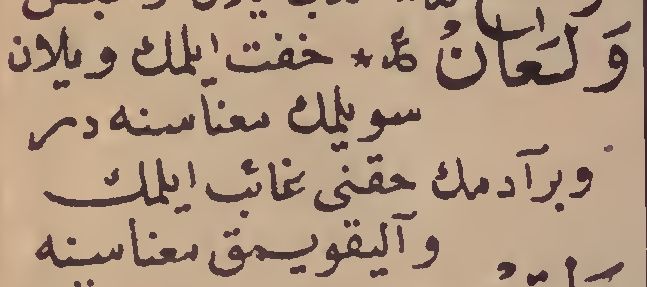 وَلَعَانُ * خفت ايلمك ويلان
سويلمك معناسنه در
وبرآدمك حقنى غائب ايلمك
وآليقويمق معناسينه